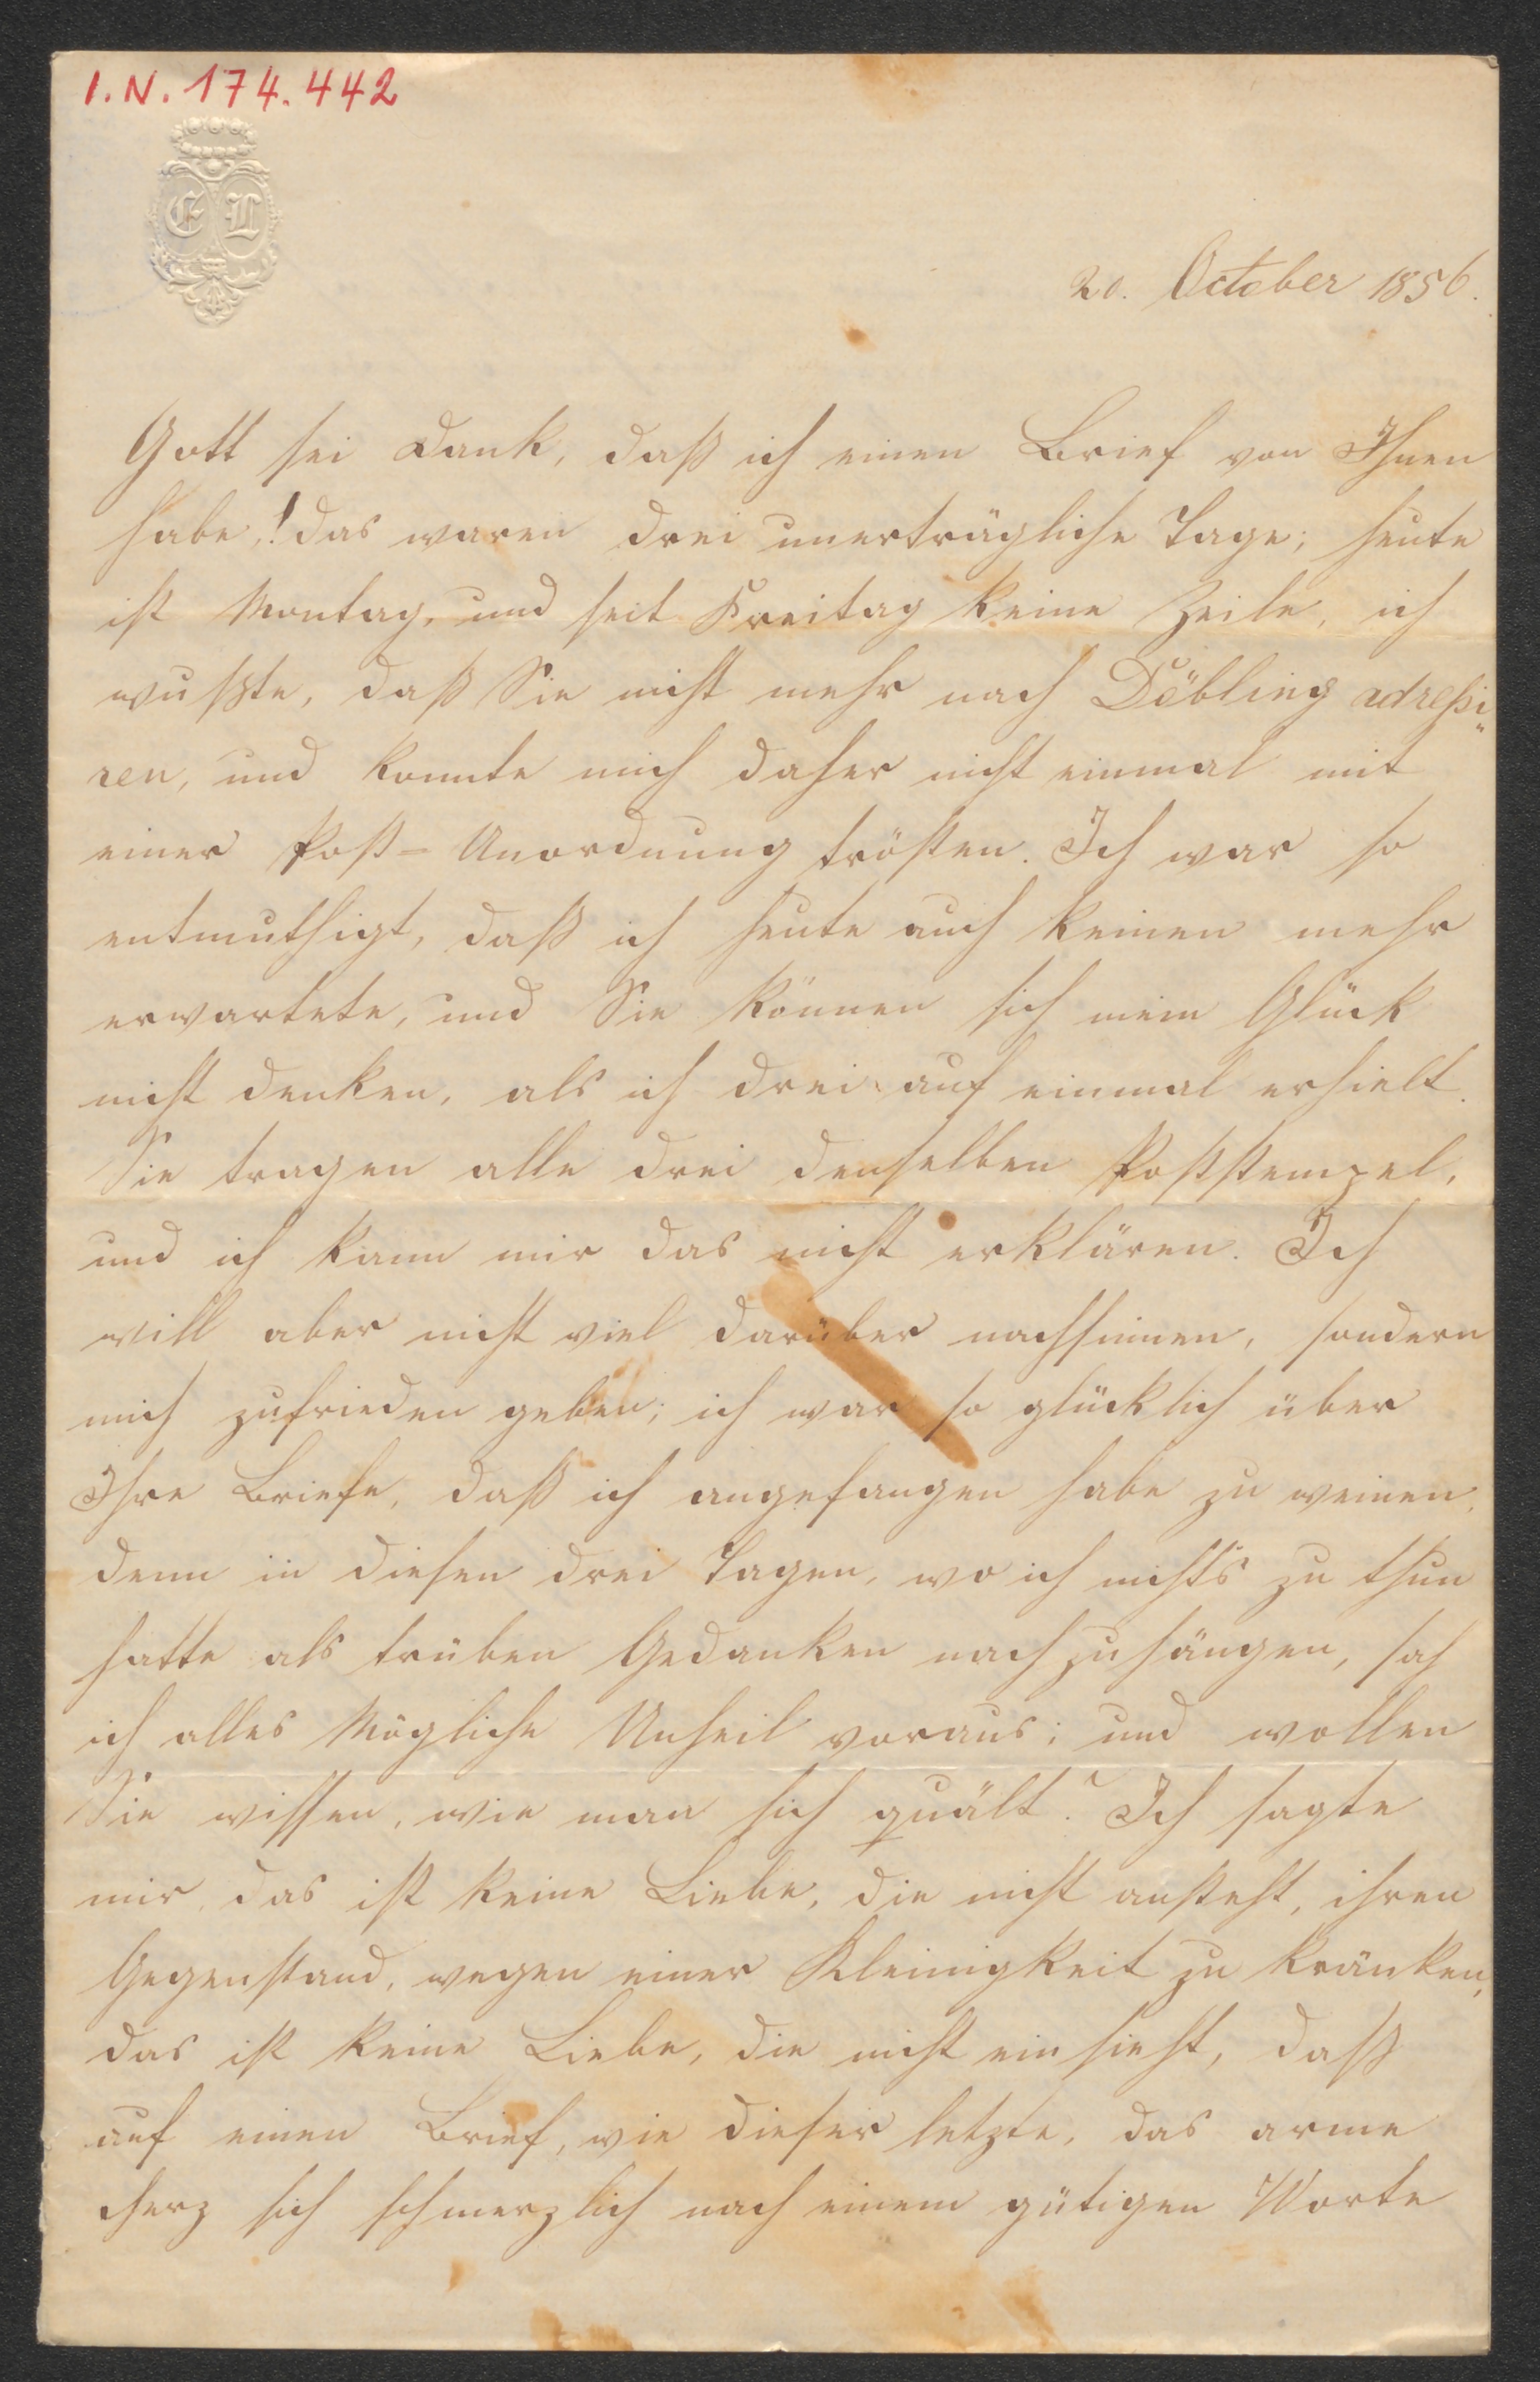 I.N. 174.442
E L
20. October 1856.
Gott sei Dank, daß ich einen Brief von Ihnen
habe,! das waren drei unerträgliche Tage; heute
ist Montag, und seit Freitag keine Zeile, ich
wußte, daß Sie nicht mehr nach Döbling adreßi„
ren, und konnte mich daher nicht einmal mit
einer Post-Unordnung trösten. Ich war so
entmuthigt, daß ich heute auch keinen mehr
erwartete, und Sie können sich mein Glück
nicht denken, als ich drei auf einmal erhielt.
Sie tragen alle drei denselben Poststempel,
und ich kann mir das nicht erklären. Ich
will aber nicht viel darüber nachsinnen, sondern
mich zufrieden geben; ich war so glücklich über
Ihre Briefe, daß ich angefangen habe zu weinen,
denn in diesen drei Tagen, wo ich nichts zu thun
hatte als trüben Gedanken nachzuhängen, sah
ich alles Mögliche Unheil voraus; und wollen
Sie wissen, wie man sich quält? Ich sagte
mir, das ist keine Liebe, die nicht ansteht, ihren
Gegenstand, wegen einer Kleinigkeit zu kränken,
das ist keine Liebe, die nicht einsieht, daß
auf einen Brief, wie dieser letzte, das arme
Herz sich schmerzlich nach einem gütigen Worte